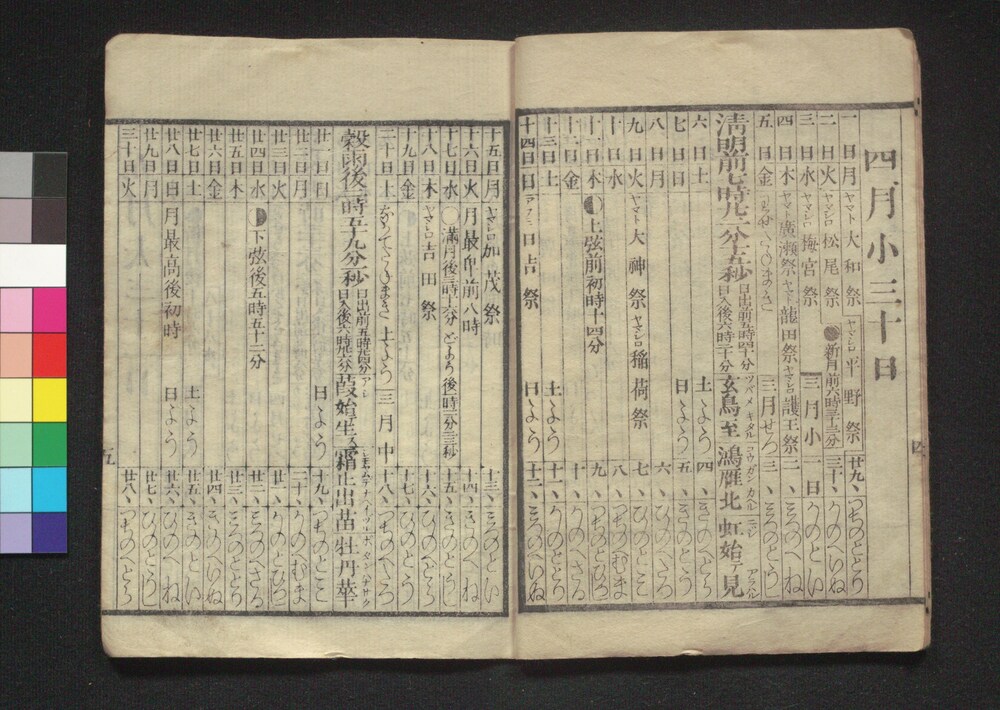 四月小三十日
一日月 ヤマト大和祭 ヤマシロ平野祭 廿九、つちのとのとり
二日火 ヤマシロ松尾祭 ●新月前六時三十三分 三十、かのへいぬ
三日水 ヤマシロ梅宮祭 三月小 日 かのとのい
四日木 ヤマト廣瀬祭 ヤマト龍田祭 ヤマシロ護王祭 二、みづのへね
五日金 三月せつ 三、みづのとのうし
清明前七時 日入後六時二十分 玄鳥至 鴻雁北 虹始見
六日土 土よう 四、きのへとら
七日日 日よう 五、きのとのう
八日月 六、ひのへたつ
九日火 ヤマト大神祭 ヤマシロ稲荷祭 七、ひのとのみ
十日水 八、つちのへむま
十一日木 上弦前初時十四分 九、つちのとのひつじ
十二日金 十、かのへさる
十三日土 土よう 十一、かのとのとり
十四日日 日吉祭 日よう 十二、みづのへいぬ
十五日月 ヤマシロ加茂祭 十三、みづのとのい
十六日火 月最卑前八時 十四、きのへね
十七日水 ○満月後 十五、きのとのうし
十八日木 ヤマシロ吉田祭 十六、ひのへとら
十九日金 十七、ひのとのう
二十日土 土よう 三月中 十八、つちのへたつ
穀雨後一時五十九分 葭始生 霜止出苗 牡丹華
廿一日日 日よう 十九、つちのとのみ
廿二日月 二十、かのへむま
廿三日火 廿一、かのとのひつじ
廿四日水 下弦後五時五十二分 廿二、みづのへさる
廿五日木 廿三、みづのとのとり
廿六日金 廿四、きのへいぬ
廿七日土 土よう 廿五、きのとのい
廿八日日 月最高後初時 日よう 廿六、ひのへね
廿九日月 廿七、ひのとのうし
三十日火 廿八、つちのへとら
五